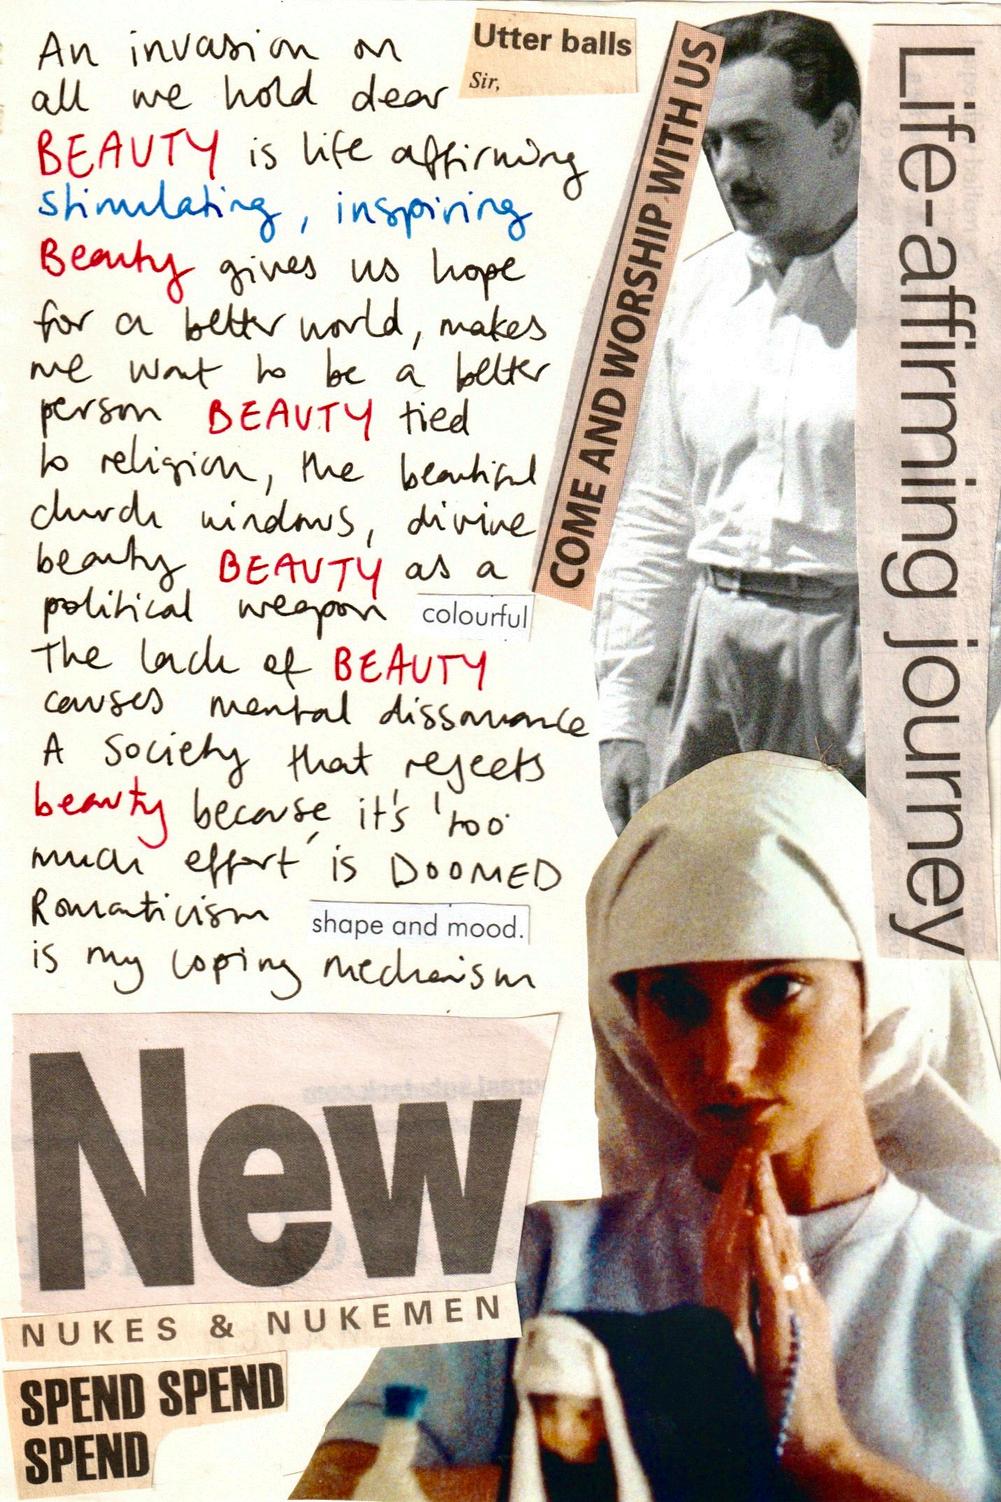 An invasion on
all we hold dear
BEAUTY is life affirming
stimulating, inspiring
Beauty gives us hope
for a better world, makes
me want to be a better
person BEAUTY tied
to religion, the beautiful
church windows, divine
beauty BEAUTY as a
political weapon
colourful
The lack of BEAUTY
causes mental dissonance
A society that rejects
beauty because it's 'too
much effort' is DOOMED
Romanticism
shape and mood.
is my coping mechanism
Utter balls
Sir,
COME AND WORSHIP WITH US
Life-affirming journey
New
NUKES & NUKEMEN
SPEND SPEND
SPEND